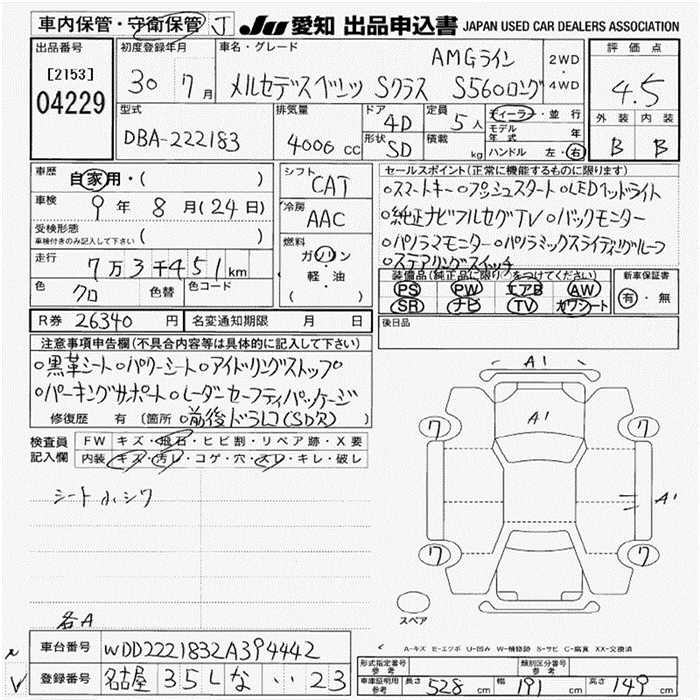 車内保管・守衛保管 J JU 愛知 出品申込書 JAPAN USED CAR DEALERS ASSOCIATION
出品番号 初度登録年月 車名・グレード AMGライン 2WD・4WD 評価点
[2153] 30 7月 メルセデスベンツ Sクラス S560ロング 4.5
04229 型式 排気量 ドア 4D 定員 5人 ディーラー・並行 外装 内装
DBA-222183 4000 CC 形状 SD 積載 kg モデル年式 年 B B
ハンドル 左・右
車歴 自家用・( ) シフト CAT セールスポイント(正常に機能するものに限ります)
車検 9年8月(24日) 冷房 AAC ○スマートキー○プッシュスタート○LEDヘッドライト
受検形態 ( ) ○純正ナビフルセグTV○バックモニター
車検付きのみ記入して下さい 燃料 ○パノラマモニター○パノラミックスライディングルーフ
走行 7万3千451km ガソリン ○ステアリングスイッチ
色 クロ 色替 色コード 軽・油 装備品(純正品に限り○をつけてください) 新車保証書
( ) PS PW エアB AW 有・無
SR ナビ TV カワシート
R券 26340円 名変通知期限 月 日 後日品
注意事項申告欄(不具合内容等は具体的に記入して下さい)
○黒革シート○パワーシート○アイドリングストップ○
○パーキングサポート○レーダーセーフティパッケージ
修復歴 有 〔箇所 ○前後ドラレコ(SD欠) 〕
検査員 FW キズ・飛石・ヒビ割・リペア跡・X要
記入欄 内装 キズ・汚レ・コゲ・穴・スレ・キレ・破レ
シート小シワ
A1
A1
7 7
A1
7 7
スペア
各A
A-キズ E-エクボ U-凹み W-補修跡 S-サビ C-腐食 XX-交換済
車台番号 WDD2221832A394442
登録番号 名古屋 35L な ‥23
形式指定番号 参考 類別区分番号 参考
車庫証明用 参考 長さ 528 cm 幅 191 cm 高さ 149 cm